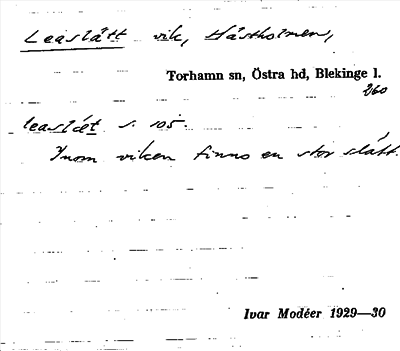 Leaslått vik, Hästholmen,
Torhamn sn, Östra hd, Blekinge l.
260
leaslœt s. 105.
Inom viken finns en stor slått.
Ivar Modéer 1929—30